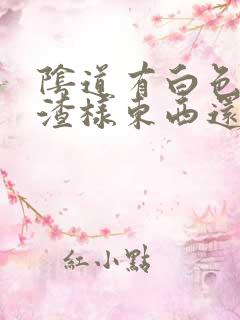 陰道有白色
渣樣東西還
紅小點